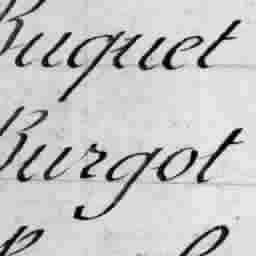 Buquet
Burgot